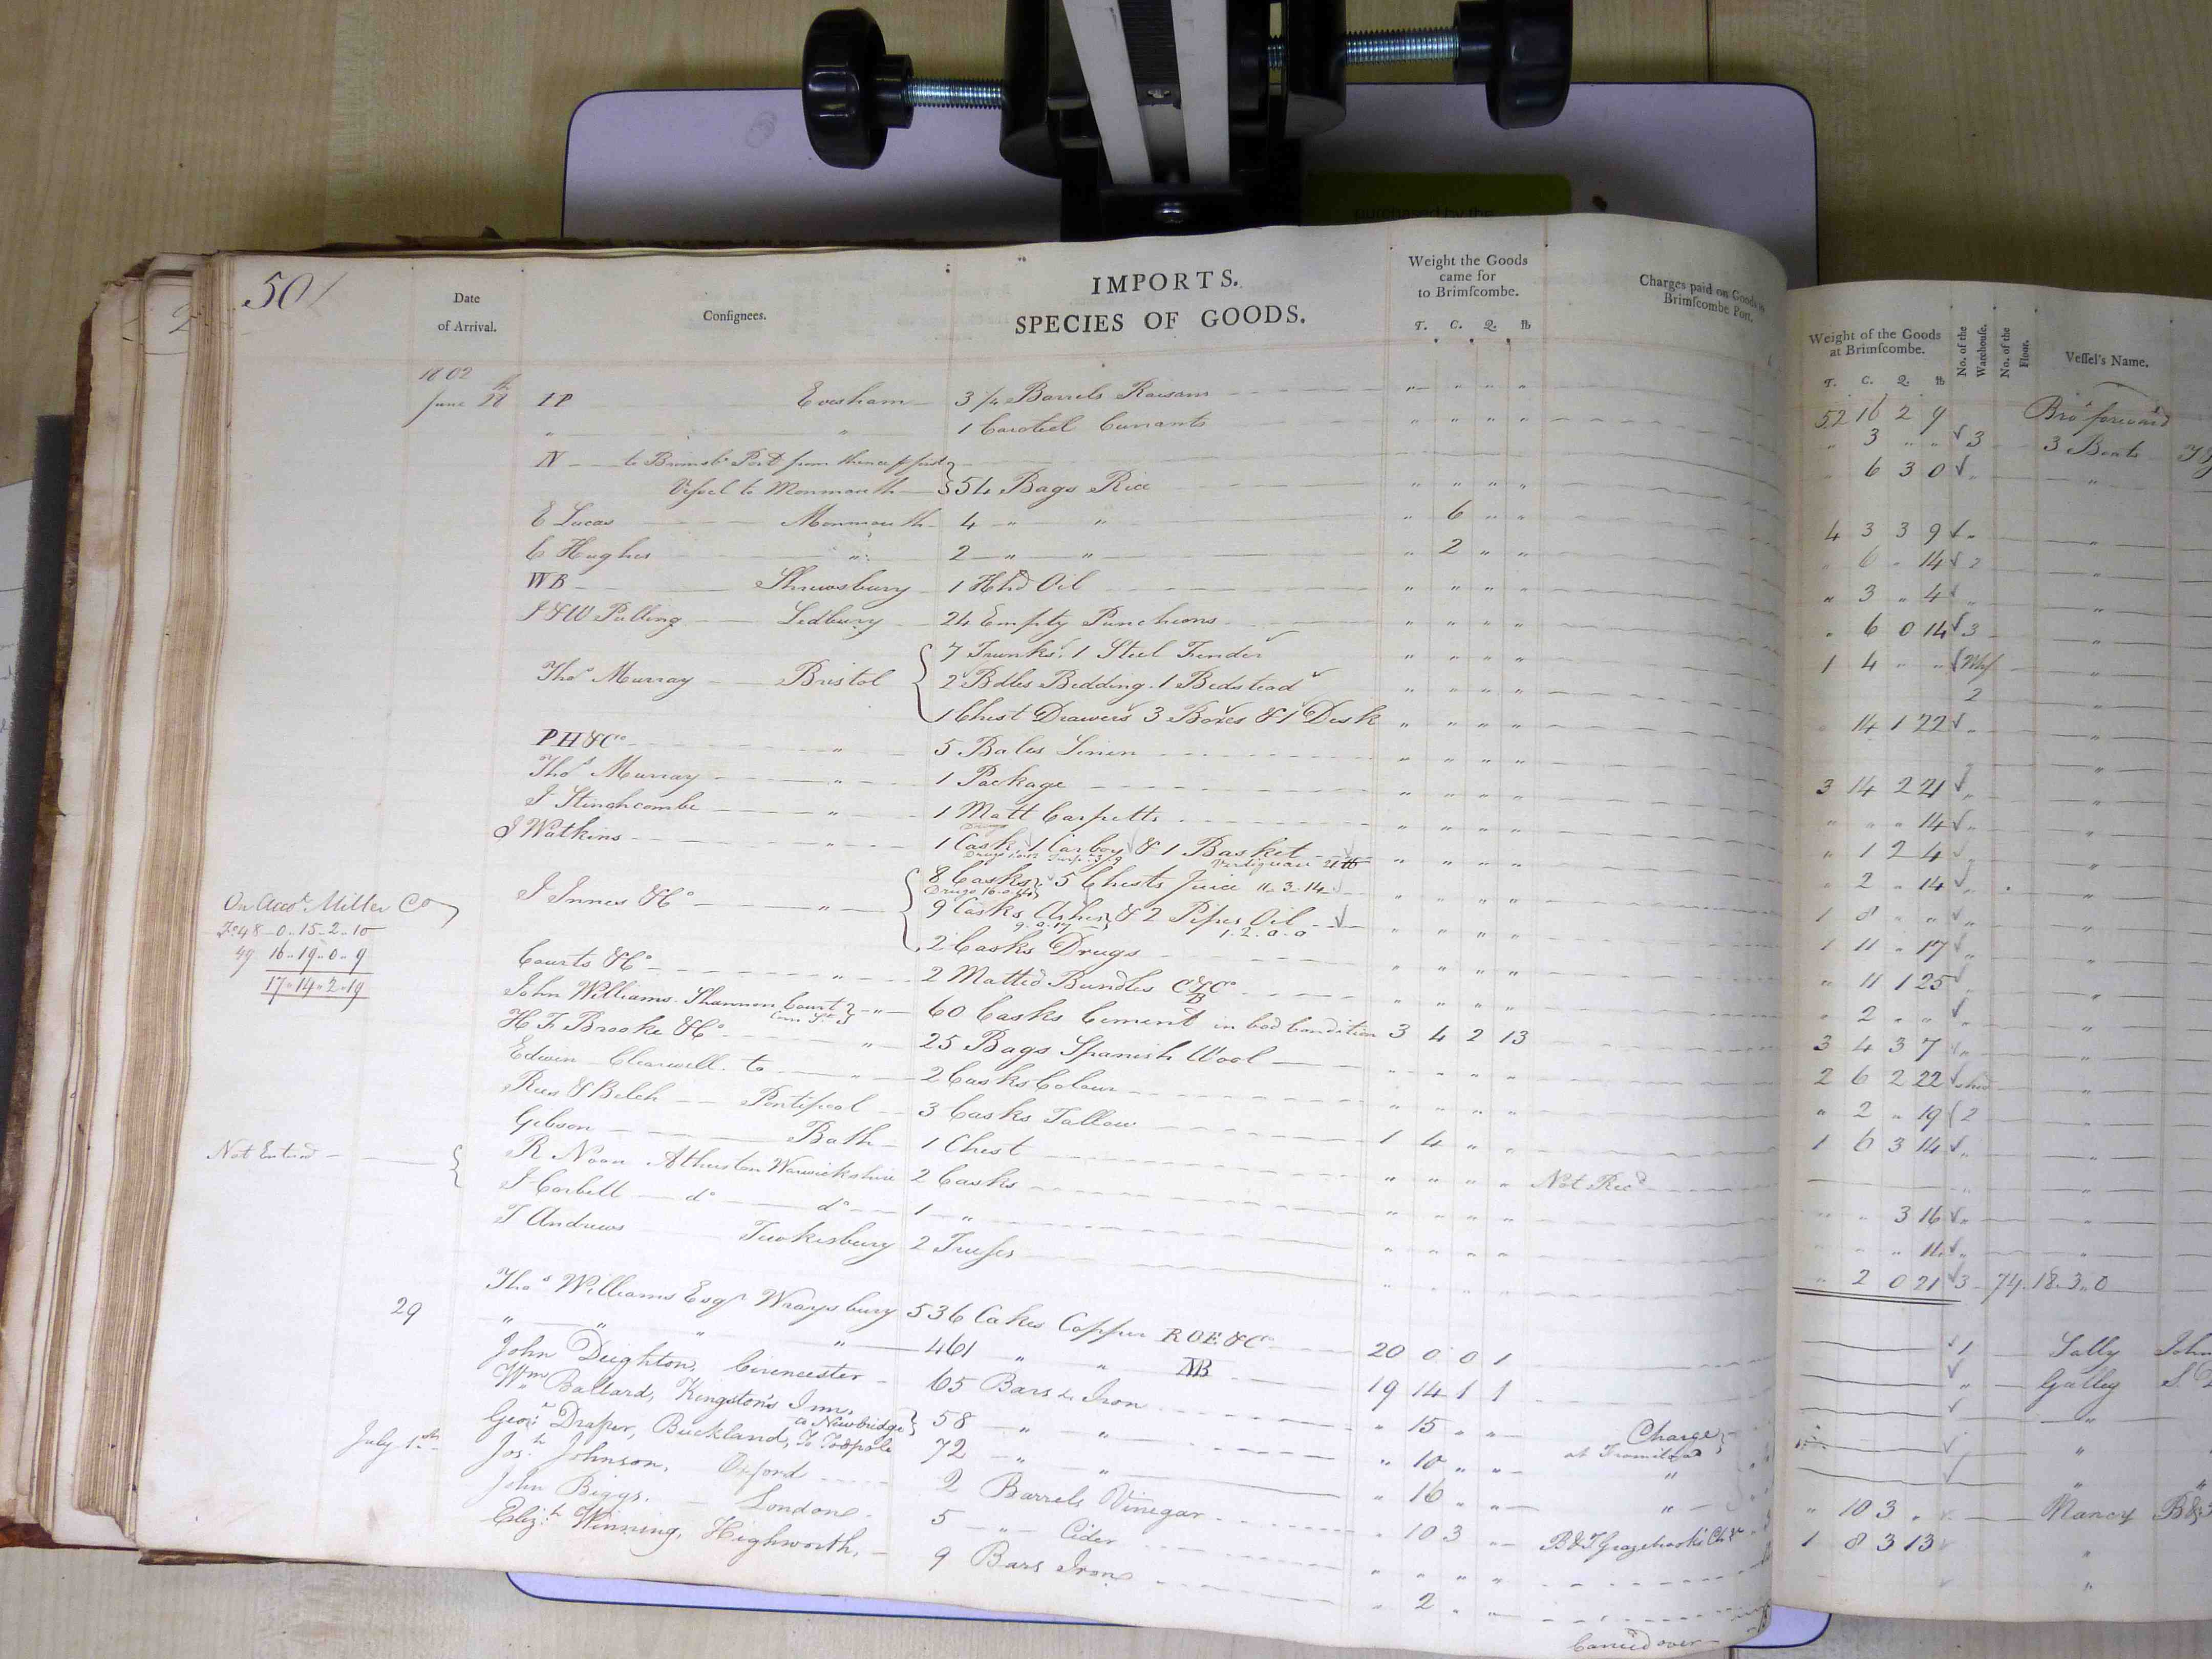 purchased by the
50
IMPORTS.
SPECIES OF GOODS.
Date
of Arrival.
Consignees.
Weight the Goods
came for
to Brimscombe.
T. C. Q. lb
Charges paid on Goods to
Brimscombe Port.
Weight of the Goods
at Brimscombe.
T. C. Q. lb
No. of the
Warehouse.
No. of the
Floor.
Vessel's Name.
1802
52 16 2 9 Bro.t forward
June 28th I P Evesham 3 1/4 Barrels Raisons " " " " " 3 " " √ 3 3 Boats
" " 1 Caroteel Currants " " " " 6 3 0 √ "
N to Brimsb. Port from thence p first
Vessel to Monmouth 54 Bags Rice " " " " 4 3 3 9 √ "
E Lucas Monmouth 4 " " " 6 " " " 6 " 14 √ 2 "
C Hughes " 2 " " " 2 " " " 3 " 4 √ "
WB Shrewsbury 1 Hhd Oil " " " " " 6 0 14 √ 3 "
J & W Pulling Ledbury 24 Empty Puncheons " " " " 1 4 " " √ Whf "
Thos Murray Bristol 7 Trunks. 1 Steel Fender √ " " " " 2
2 Bdles Bedding. 1 Bedstead √ " " " " 14 1 22 √ "
1 Chest Drawers 3 Boxes & 1 Desk " " " "
PH & Co " 5 Bales Linen " " " " 3 14 2 21 √ "
Thos Murray " 1 Package " " " " " " " 14 √ "
J Stinchcombe " 1 Matt Carpetts " " " " " 1 2 4 √ "
J Watkins " 1 Cask, 1 Carboy & 1 Basket " " " " " 2 " 14 √ "
J Innes & Co " 8 Casks 5 Chests Juice 11.3.14 " " " " 1 8 " " √ "
Drugs
9 Casks Ashes & 2 Pipes Oil √ " " " " 1 11 " 17 √ "
9.0.17 1.2.0.0
2 Casks Drugs " " " " " 11 1 25 √ "
On Acco.t Miller Co
Fo 48 - 0.15.2.10
49 16.19.0.9
17.14.2.19
Courts & Co " 2 Matted Bundles C&Co B " " " " " 2 " " √ "
John Williams. Shannon Court Corn St " 60 Casks Cement in bad Condition 3 4 2 13 3 4 3 7 √ "
H F Brooke & Co " 25 Bags Spanish Wool " " " " 2 6 2 22 √ shed "
Edwin Clearwell to " 2 Casks Colour " " " " " 2 " 19 2 "
Rees & Belch Pontipool 3 Casks Tallow 1 4 " " 1 6 3 14 √ "
Gibson Bath 1 Chest " " " " Not Recd "
Not Enterd
R Noon Atherston Warwickshire 2 Casks " " " " " " 3 16 √ "
J Corbett do do 1 " " " " " " " " 11 √ "
T Andrews Tewkesbury 2 Trusses " " " " " 2 0 21 √ 3 74.18.3.0
29 Thos Williams Esqr Wraysbury 536 Cakes Copper ROE & Co 20 0 0 1 √ 1 Sally John
" " " " 461 " " 19 14 1 1 √ " Galley S.
John Deighton, Cirencester 65 Bars Iron " 15 " " Charge √ "
at Framilode
Wm Ballard, Kingston's Inn,
a Newbridge 58 " " " 10 " " " √ "
Geo: Draper, Buckland, To Tadpole 72 " " " 16 " " " √ " "
July 1st Jos.h Johnson, Oxford 2 Barrels Vinegar " 10 3 " B & T Grazebrook's Chge " 10 3 " Nancy
John Biggs, London 5 " Cider " " " " 1 8 3 13 "
Eliz.th Winning, Highworth, 9 Bars Iron " 2 " " "
Carried over